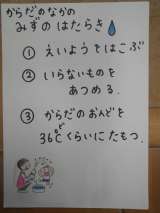 からだのなかの
みずの はたらき
① えいようをはこぶ
② いらないものを
あつめる.
③ からだのおんどを
36℃くらいにたもつ.